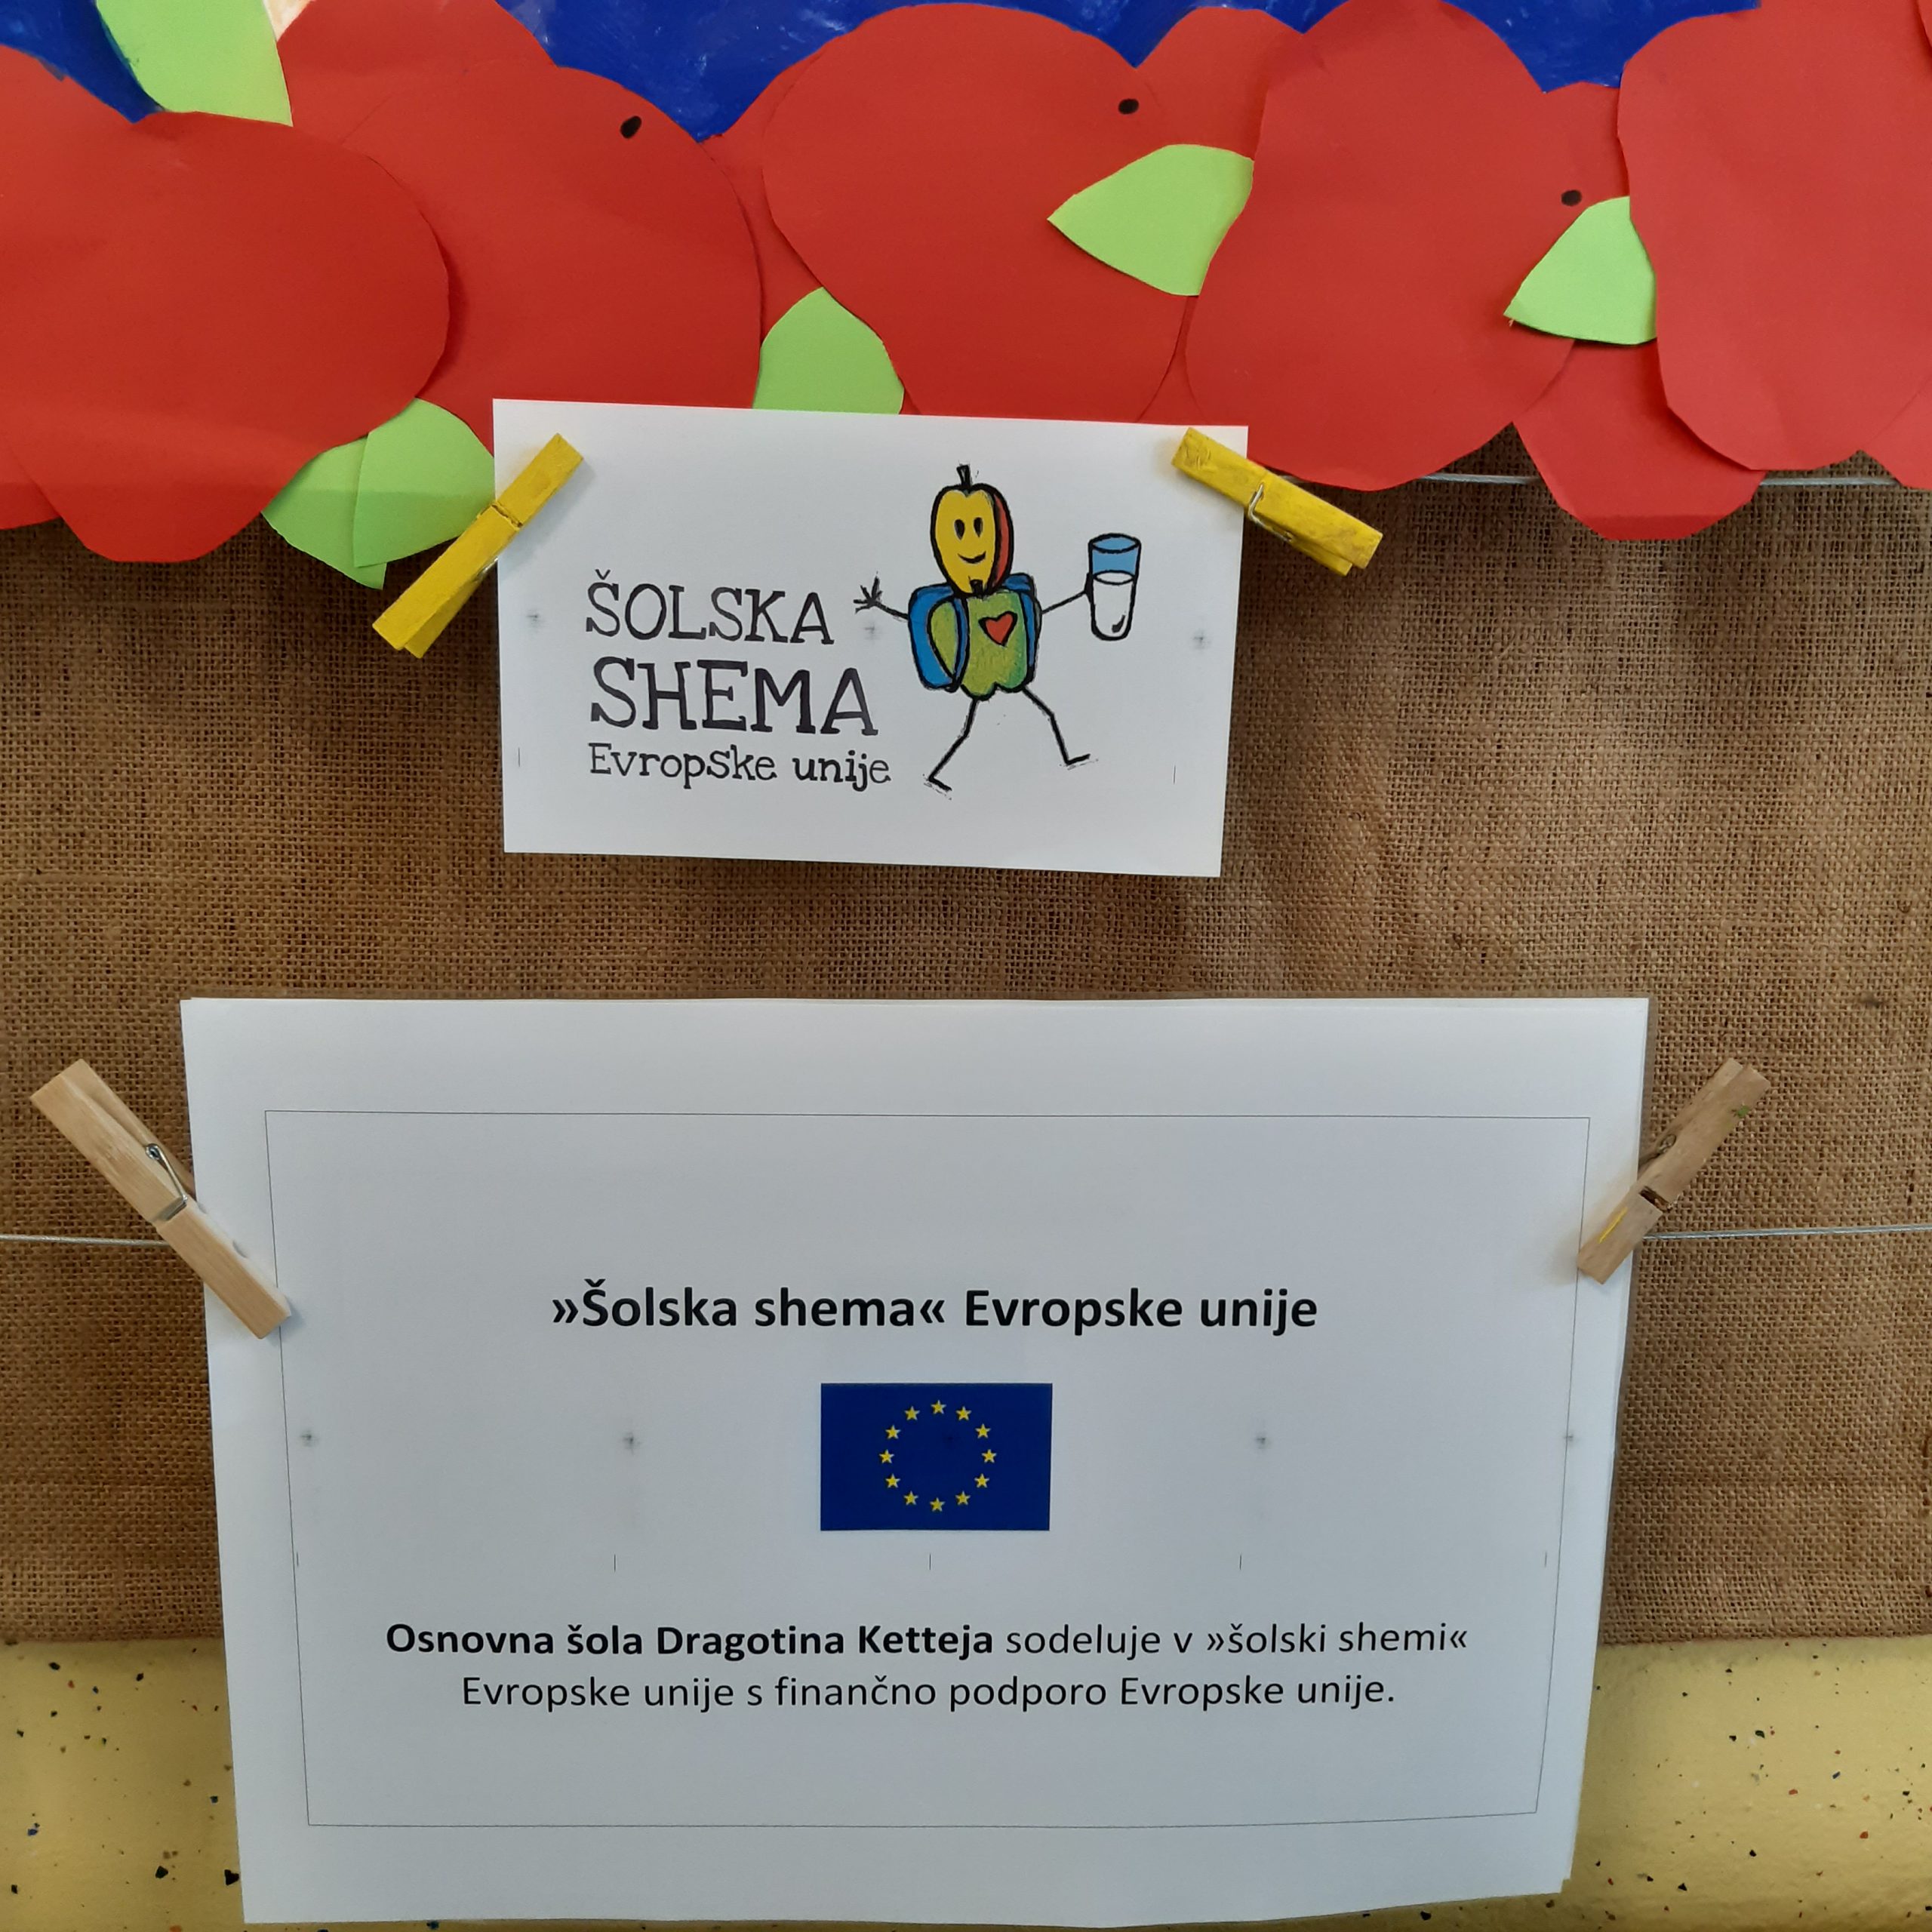 ŠOLSKA
SHEMA
Evropske unije
»Šolska shema« Evropske unije
Osnovna šola Dragotina Ketteja sodeluje v »šolski shemi«
Evropske unije s finančno podporo Evropske unije.